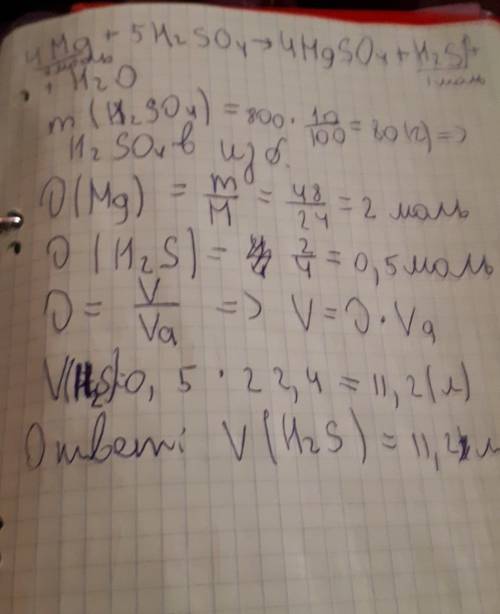 4Mg + 5H2SO4 → 4MgSO4 + H2S↑+
4 моль 1 моль
+ H2O
m (H2SO4) = 800 · 10/100 = 80(г) =>
H2SO4 в изб.
υ(Mg) = m/M = 48/24 = 2 моль
υ(H2S) = 2/4 = 0,5 моль
υ = V/Va => V = υ · Va
V(H2S)=0,5 · 22,4 = 11,2(л)
Ответ: V (H2S) = 11,2 л